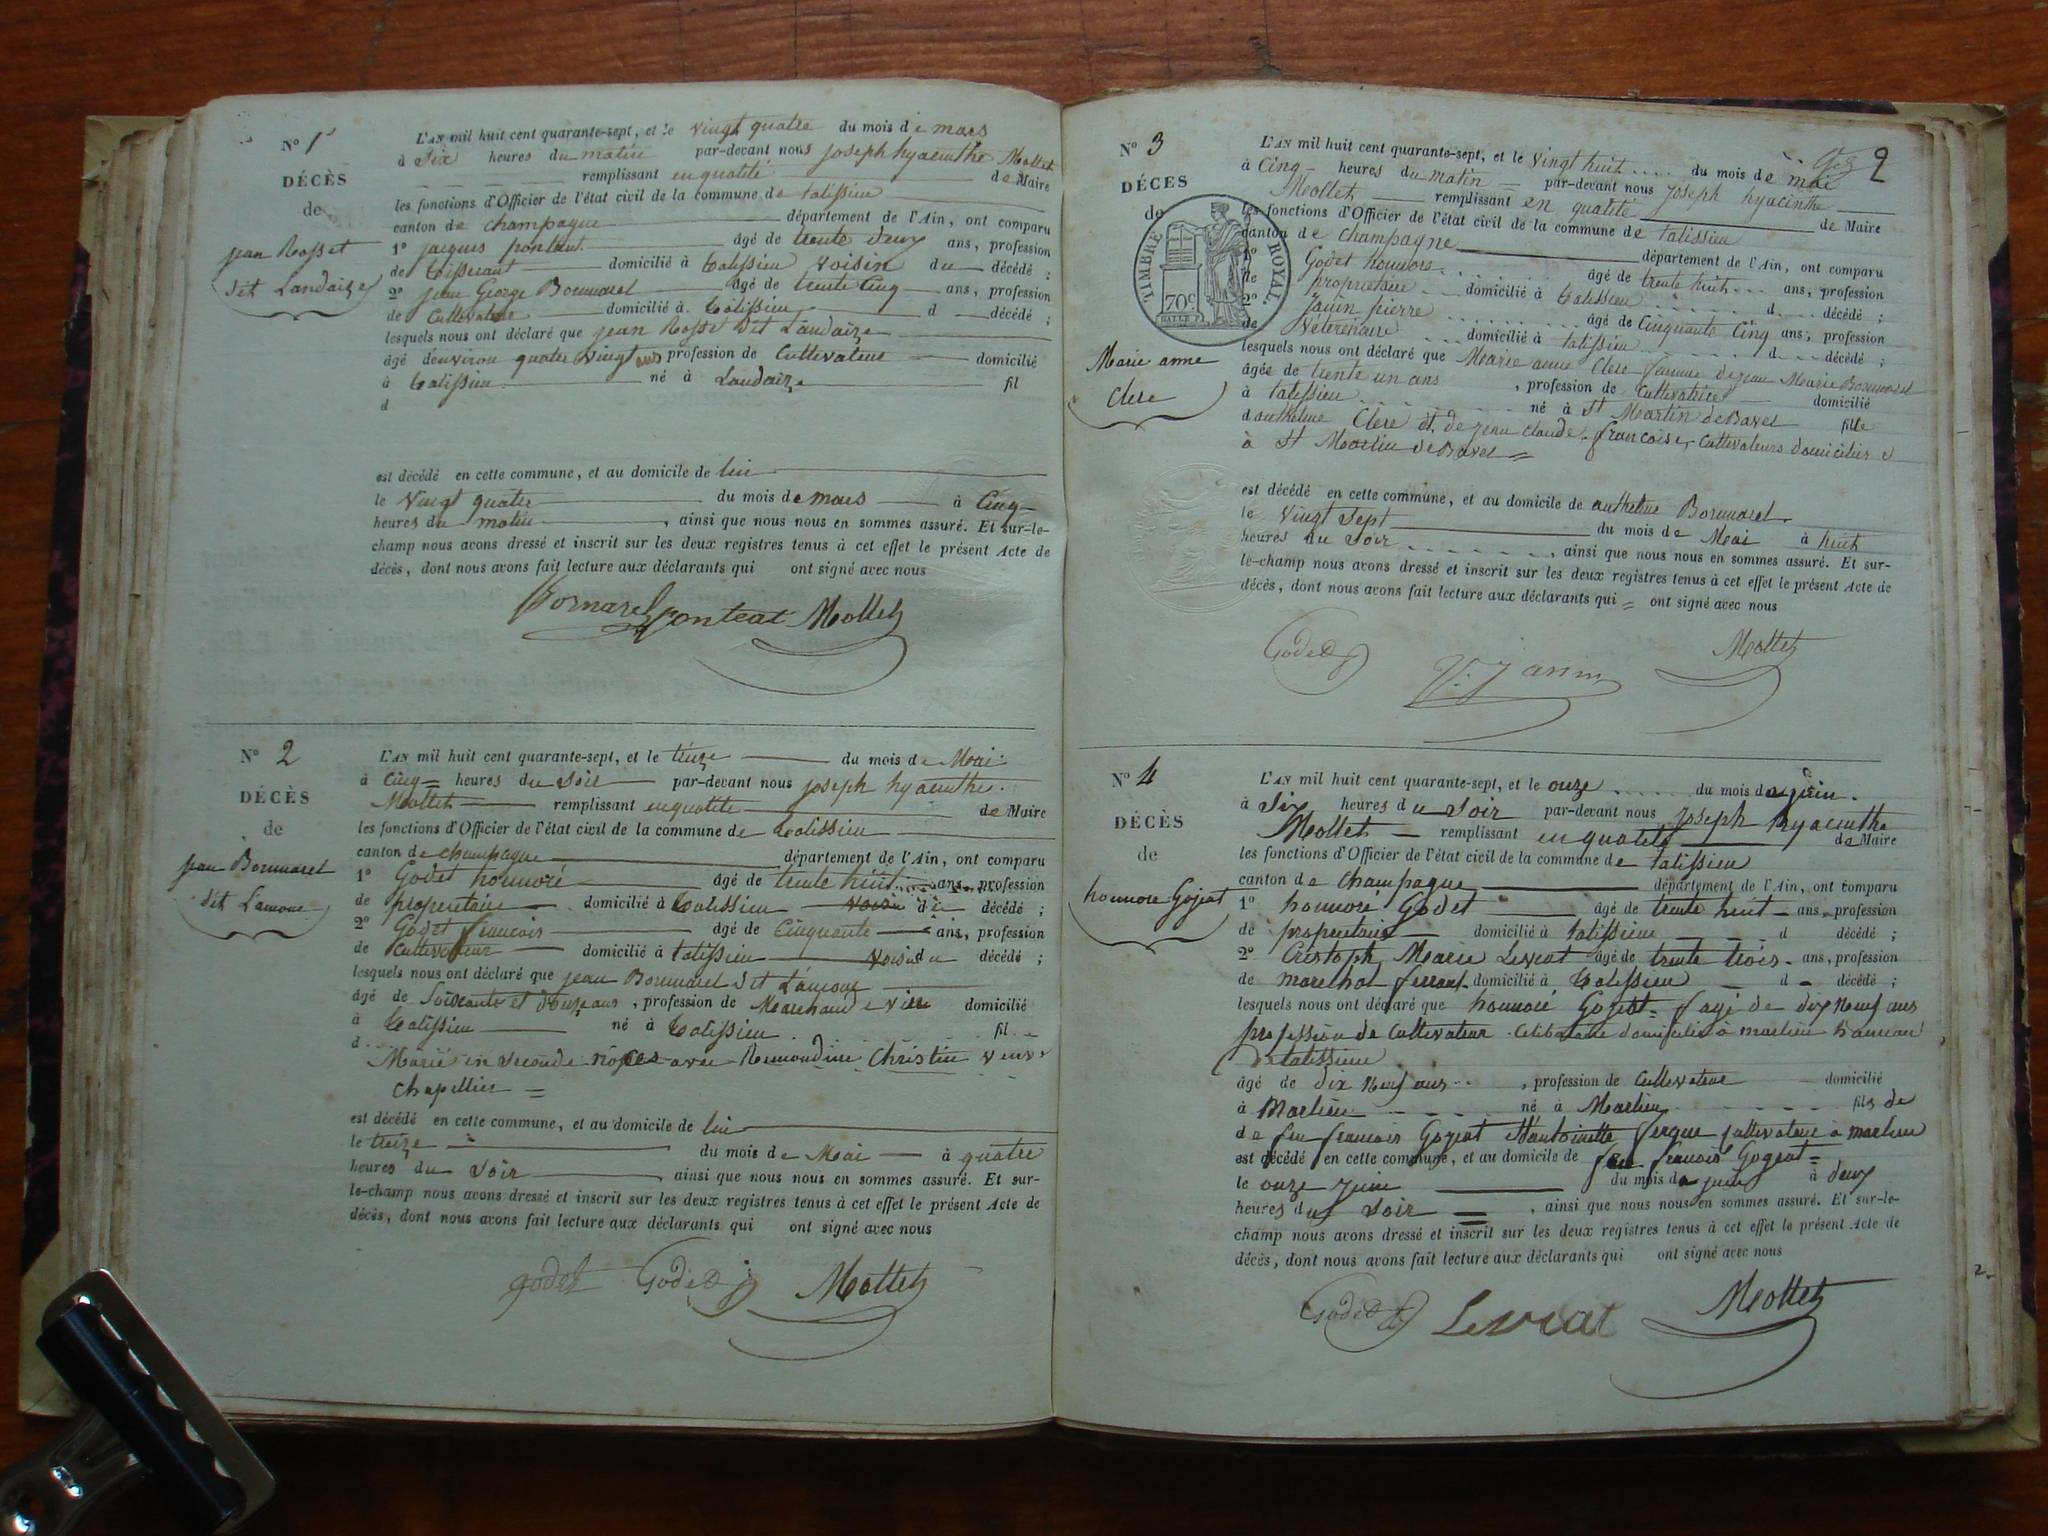 Nº 1
DÉCÈS
de
jean Rosset
dit Landaize
L'AN mil huit cent quarante-sept, et le vingt quatre du mois de mars
à Six heures du matin par-devant nous joseph hyacinthe Mollet
remplissant en qualité de Maire
les fonctions d'Officier de l'état civil de la commune de talissieu
canton de champagne département de l'Ain, ont comparu
1º jacques pontent âgé de trente deux ans, profession
de tisserant domicilié à talissieu voisin du décédé ;
2º jean George Bonnarel âgé de trente Cinq ans, profession
de Cultivateur domicilié à talissieu d décédé ;
lesquels nous ont déclaré que jean Rosset dit Landaize
âgé d'environ quatre vingt ans profession de Cultivateur domicilié
à talissieu né à Landaize fil
d
est décédé en cette commune, et au domicile de lui
le Vingt quatre du mois de mars à Cinq
heures du matin , ainsi que nous nous en sommes assuré. Et sur-le-
champ nous avons dressé et inscrit sur les deux registres tenus à cet effet le présent Acte de
décès, dont nous avons fait lecture aux déclarants qui ont signé avec nous
Bornarel Mollet
Nº 2
DÉCÈS
de
jean Bonnarel
dit Lamour
L'AN mil huit cent quarante-sept, et le treize du mois de Mai
à Cinq heures du Soir par-devant nous joseph hyacinthe
Mollet remplissant en qualité de Maire
les fonctions d'Officier de l'état civil de la commune de talissieu
canton de champagne département de l'Ain, ont comparu
1º Godet honnoré âgé de trente huit ans, profession
de propriétaire domicilié à talissieu voisin du décédé ;
2º Godet francois âgé de Cinquante ans, profession
de Cultivateur domicilié à talissieu voisin du décédé ;
lesquels nous ont déclaré que jean Bonnarel dit Lamour
âgé de Soixante et douze ans , profession de Marchand de vin domicilié
à talissieu né à talissieu fil
d
Marié en seconde noces avec Remondine Christin veuve
chapellier =
est décédé en cette commune, et au domicile de lui
le treize du mois de Mai à quatre
heures du Soir , ainsi que nous nous en sommes assuré. Et sur-
le-champ nous avons dressé et inscrit sur les deux registres tenus à cet effet le présent Acte de
décès, dont nous avons fait lecture aux déclarants qui ont signé avec nous
godet Godet Mollet
2
Nº 3
DÉCÈS
de
TIMBRE ROYAL.
70c
Marie anne
Clere
L'AN mil huit cent quarante-sept, et le vingt huit du mois de mai
à Cinq heures du matin par-devant nous joseph hyacinthe
Mollet remplissant en qualité de Maire
les fonctions d'Officier de l'état civil de la commune de talissieu
canton de champagne département de l'Ain, ont comparu
1º Godet honnoré âgé de trente huit ans, profession
de propriétaire domicilié à talissieu d décédé ;
2º Janin pierre âgé de Cinquante Cinq ans, profession
de Vétérénaire domicilié à talissieu d décédé ;
lesquels nous ont déclaré que Marie anne Clere famme de jean Marie Bonnarel
âgée de trente un ans , profession de Cultivatrice domicilié
à talissieu né à St Martin de Bavel fille
d'anthelme Clere et de jeau claude francoise, Cultivateurs domiciliés
à St Martin de Bavel =
est décédé en cette commune, et au domicile de anthelme Bonnarel
le vingt Sept du mois de Mai à huit
heures du Soir , ainsi que nous nous en sommes assuré. Et sur-
le-champ nous avons dressé et inscrit sur les deux registres tenus à cet effet le présent Acte de
décès, dont nous avons fait lecture aux déclarants qui = ont signé avec nous
Godet V. Janin Mollet
Nº 4
DÉCÈS
de
honnore Gojeat
L'AN mil huit cent quarante-sept, et le onze du mois de juin
à Six heures du Soir par-devant nous joseph hyacinthe
Mollet remplissant en qualité de Maire
les fonctions d'Officier de l'état civil de la commune de talissieu
canton de champagne département de l'Ain, ont comparu
1º honnoré Godet âgé de trente huit ans, profession
de propriétaire domicilié à talissieu d décédé ;
2º Cristoph Marie Levrat âgé de trente trois ans, profession
de marechal ferrant domicilié à talissieu d décédé ;
lesquels nous ont déclaré que honnoré Gojeat agé de dix neuf ans
profession de Cultivateur Celibataire domicilié à marlieu hameau
de talissieu
âgé de dix neuf ans , profession de Cultivateur domicilié
à Marlieu né à Marlieu fils de
de feu francois Gojeat et d'antoinette Cultivateur à marlieu
est décédé en cette commune, et au domicile de feu francois Gojeat =
le onze juin du mois de juin à deux
heures du Soir = , ainsi que nous nous en sommes assuré. Et sur-le-
champ nous avons dressé et inscrit sur les deux registres tenus à cet effet le présent Acte de
décès, dont nous avons fait lecture aux déclarants qui ont signé avec nous
Godet Levrat Mollet